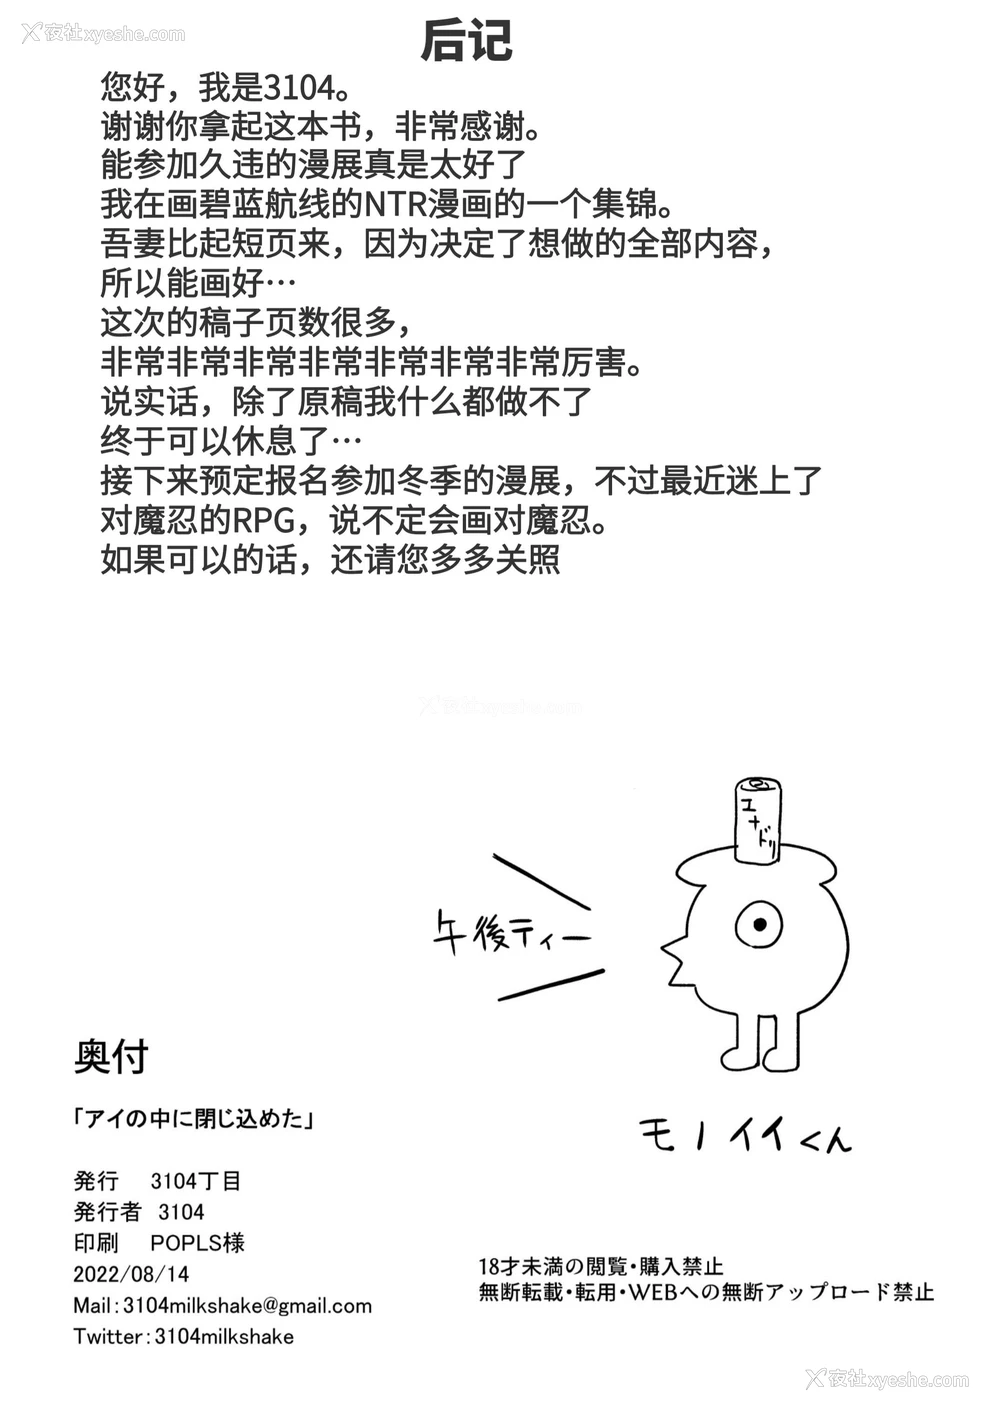 夜社xyeshe.com
后记
您好，我是3104。
谢谢你拿起这本书，非常感谢。
能参加久违的漫展真是太好了
我在画碧蓝航线的NTR漫画的一个集锦。
吾妻比起短页来，因为决定了想做的全部内容，
所以能画好…
这次的稿子页数很多，
非常非常非常非常非常非常非常厉害。
说实话，除了原稿我什么都做不了
终于可以休息了…
接下来预定报名参加冬季的漫展，不过最近迷上了
对魔忍的RPG，说不定会画对魔忍。
如果可以的话，还请您多多关照
夜社xyeshe.com
エナドリ
午後ティー
モノイイくん
奥付
「アイの中に閉じ込めた」
発行 3104丁目
発行者 3104
印刷 POPLS様
2022/08/14
Mail：3104milkshake@gmail.com
Twitter：3104milkshake
18才未満の閲覧・購入禁止
無断転載・転用・WEBへの無断アップロード禁止
夜社xyeshe.com